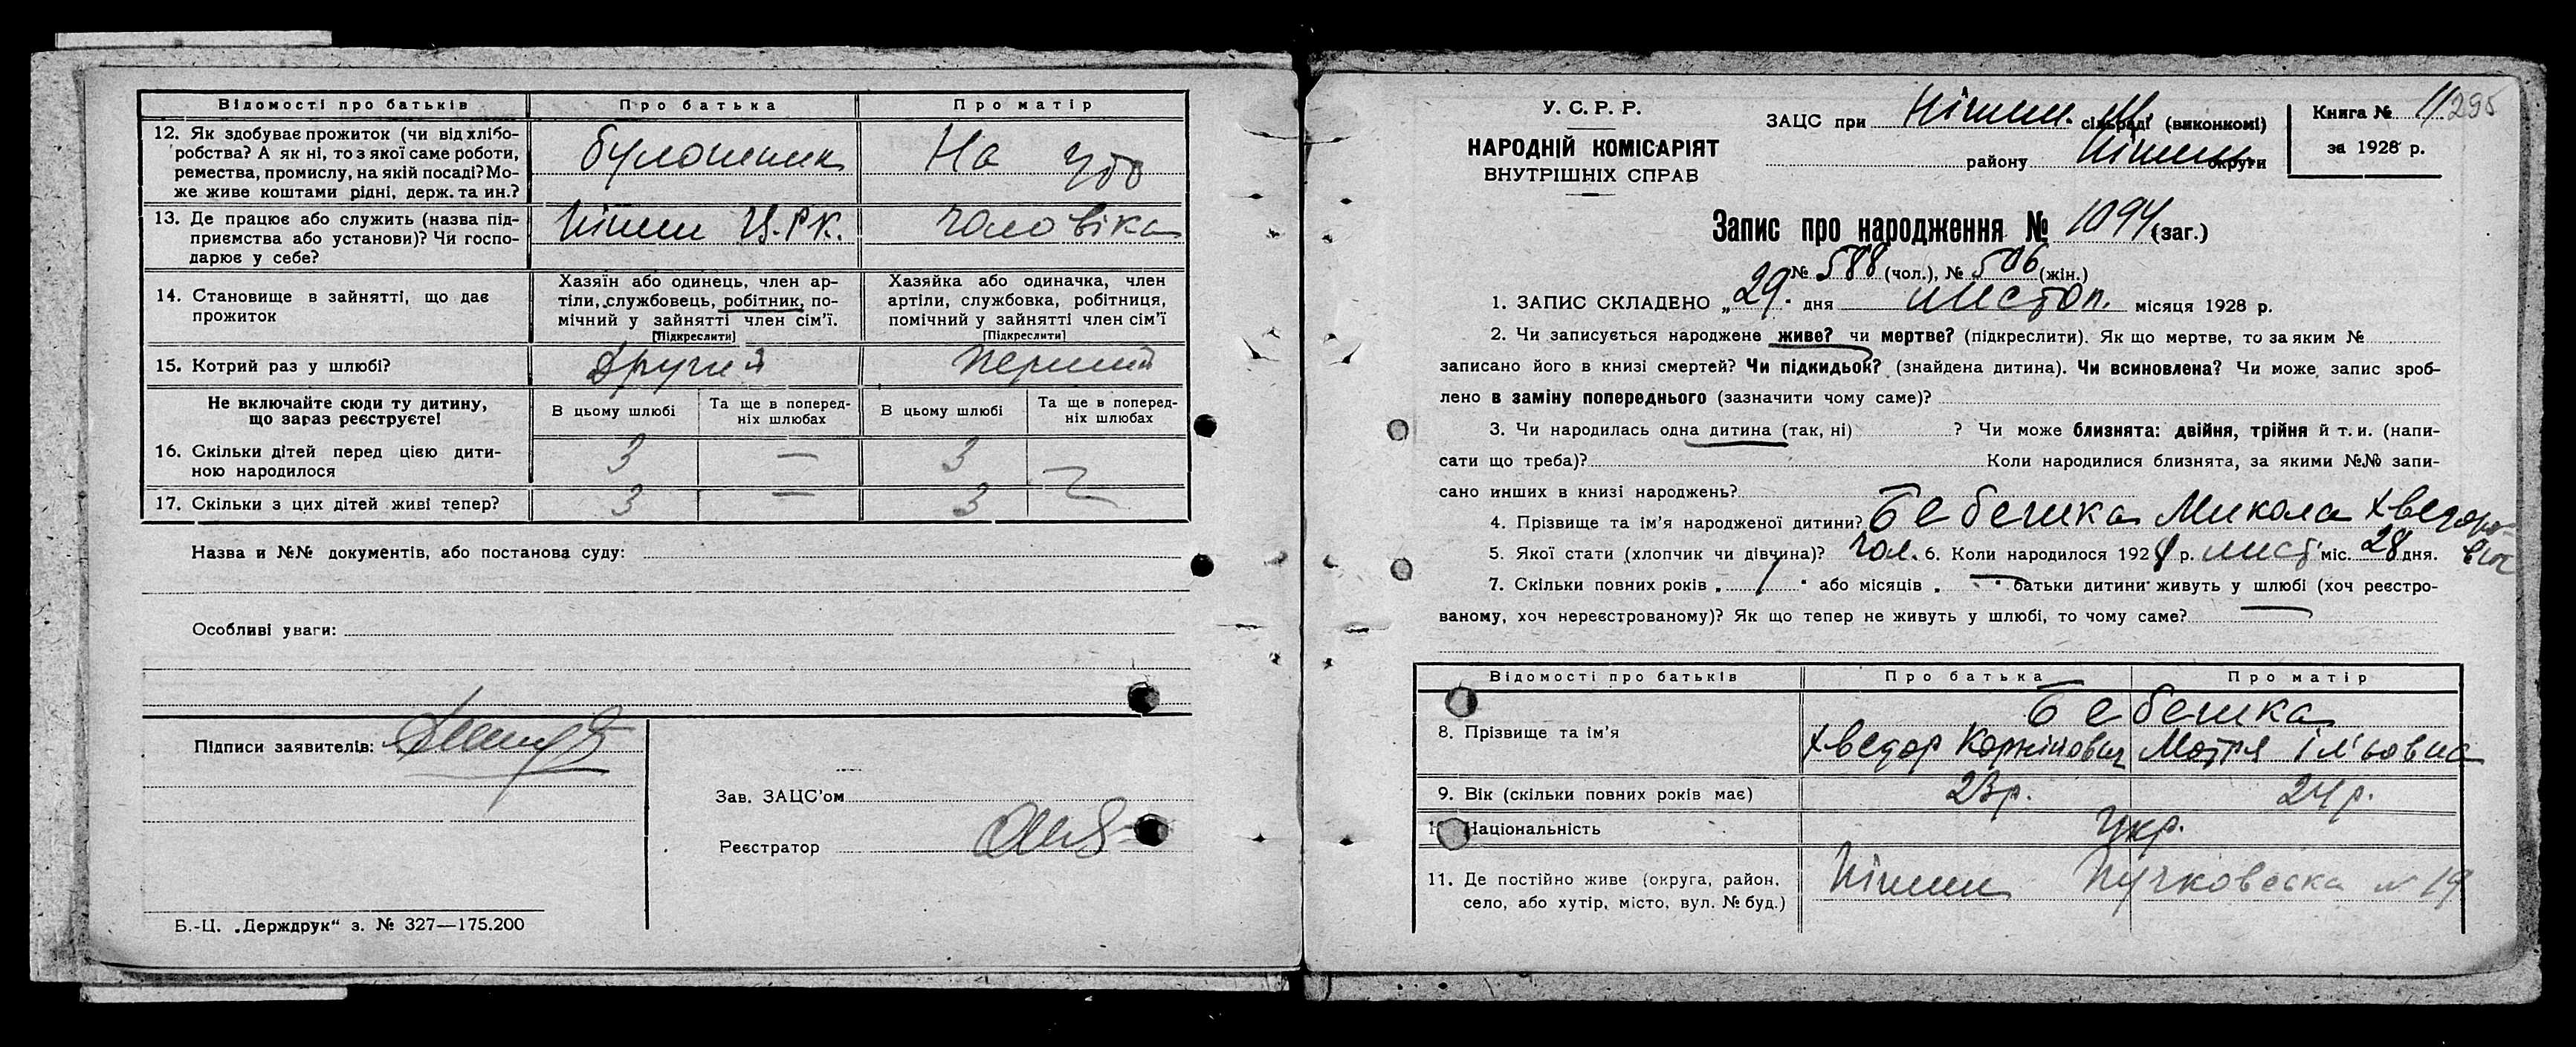 Відомості про батьків Про батька Про матір
12. Як здобуває прожиток (чи від хлібо-
робства? А як ні, то з якої саме роботи,
ремества, промислу, на якій посаді? Мо-
же живе коштами рідні, держ. та ин.?
булошник На утр
13. Де працює або служить (назва під-
приємства або установи)? Чи госпо-
дарює у себе?
Ніжин Ц.Р.К. чоловіка
14. Становище в зайнятті, що дає
прожиток
Хазяїн або одинець, член ар-
тіли, службовець, робітник, по-
мічний у зайнятті член сім'ї.
[Підкреслити]
Хазяйка або одиначка, член
артіли, службовка, робітниця,
помічний у зайнятті член сім'ї
[Підкреслити]
15. Котрий раз у шлюбі? Другий перший
Не включайте сюди ту дитину,
що зараз реєструєте!
В цьому шлюбі Та ще в поперед-
ніх шлюбах В цьому шлюбі Та ще в поперед-
ніх шлюбах
16. Скільки дітей перед цією дити-
ною народилося 3 — 3 —
17. Скільки з цих дітей живі тепер? 3 — 3
Назва и №№ документів, або постанова суду:
Особливі уваги:
Підписи заявителів:
Зав. ЗАЦС'ом
Реєстратор
Б.-Ц. „Держдрук" з. № 327—175.200
У.С.Р.Р.
НАРОДНІЙ КОМІСАРІЯТ
ВНУТРІШНІХ СПРАВ
ЗАЦС при Ніжин. М. сільраді (виконкомі)
району Ніжин округи
Книга № 11 295
за 1928 р.
Запис про народження № 1094 (заг.)
№ 588 (чол.), № 506 (жін.)
1. ЗАПИС СКЛАДЕНО „29" дня листоп. місяця 1928 р.
2. Чи записується народжене живе? чи мертве? (підкреслити). Як що мертве, то за яким №
записано його в книзі смертей? Чи підкидьок? (знайдена дитина). Чи всиновлена? Чи може запис зроб-
лено в заміну попереднього (зазначити чому саме)?
3. Чи народилась одна дитина (так, ні) ? Чи може близнята: двійня, трійня й т. и. (напи-
сати що треба)? Коли народилися близнята, за якими №№ запи-
сано инших в книзі народжень?
4. Прізвище та ім'я народженої дитини? Бебешка Микола Хведоро-
вич
5. Якої стати (хлопчик чи дівчина)? чол. 6. Коли народилося 1928 р. лист. міс. 28 дня.
7. Скільки повних років „ " або місяців „ — " батьки дитини живуть у шлюбі (хоч реєстро-
ваному, хоч нереєстрованому)? Як що тепер не живуть у шлюбі, то чому саме?
Відомості про батьків Про батька Про матір
8. Прізвище та ім'я
Бебешка
Хведор Корнійович Мотря Іл'ьовна
9. Вік (скільки повних років має) 23р. 24р.
Національність Укр.
11. Де постійно живе (округа, район,
село, або хутір, місто, вул. № буд.)
Ніжин Пучковська № 19